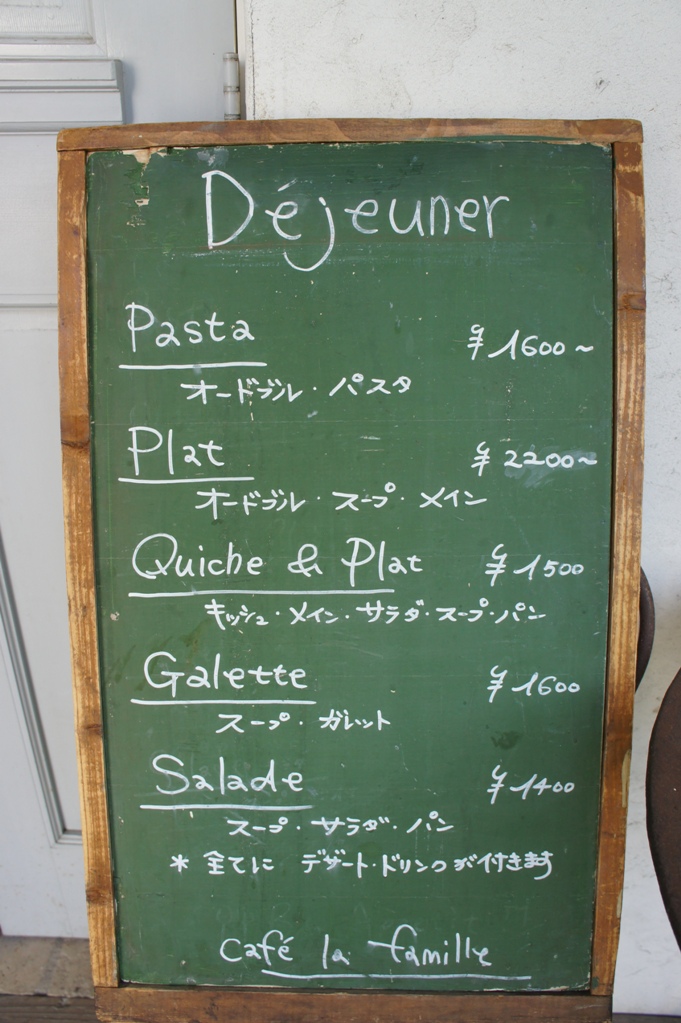 Déjeuner
Pasta ¥1600~
オードブル・パスタ
Plat ¥2200~
オードブル・スープ・メイン
Quiche & Plat ¥1500
キッシュ・メイン・サラダ・スープ・パン
Galette ¥1600
スープ・ガレット
Salade ¥1400
スープ・サラダ・パン
* 全てに デザート・ドリンクが付きます
café la famille